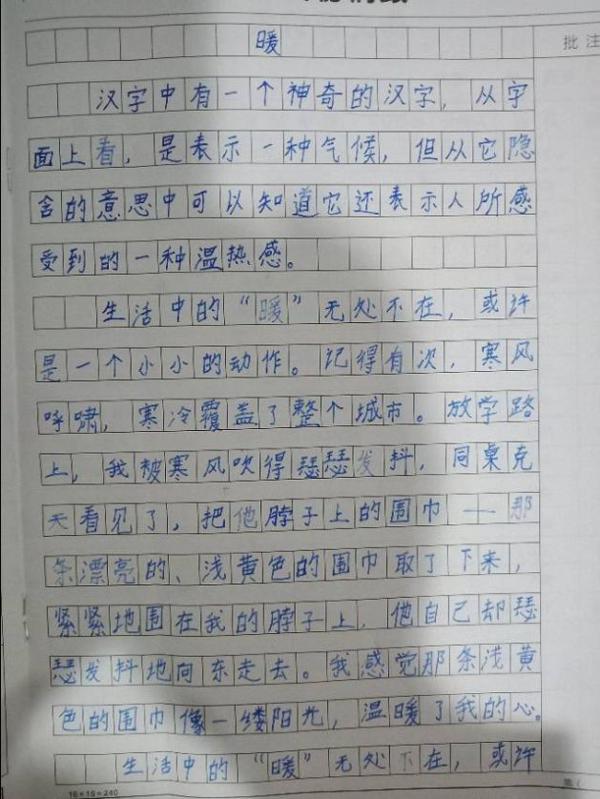 批注
暖
汉字中有一个神奇的汉字，从字
面上看，是表示一种气候，但从它隐
含的意思中可以知道它还表示人所感
受到的一种温热感。
生活中的“暖”无处不在，或许
是一个小小的动作。记得有次，寒风
呼啸，寒冷覆盖了整个城市。放学路
上，我被寒风吹得瑟瑟发抖，同桌克
天看见了，把他脖子上的围巾——那
条漂亮的、浅黄色的围巾取了下来，
紧紧地围在我的脖子上，他自己却瑟
瑟发抖地向东走去。我感觉那条浅黄
色的围巾像一缕阳光，温暖了我的心。
生活中的“暖”无处不在，或许
16×15=240